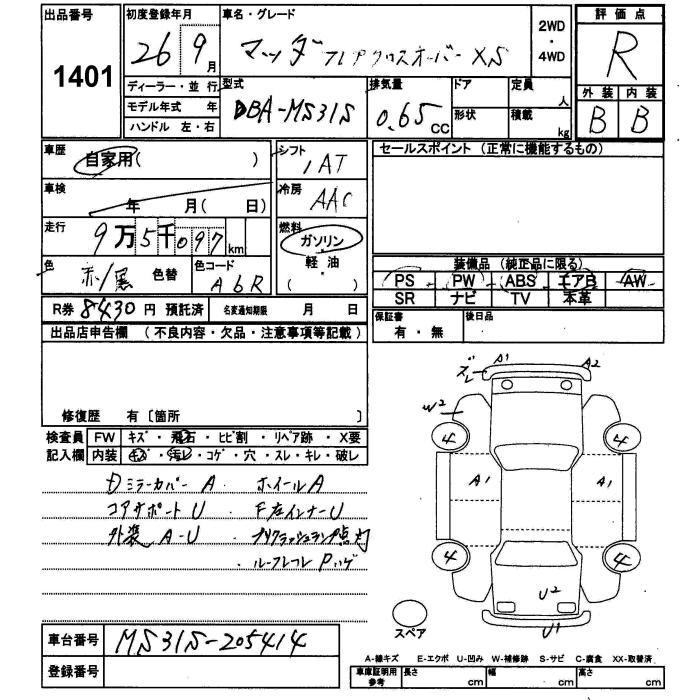 出品番号
1401
初度登録年月
26 9月
車名・グレード
マツダ フレアクロスオーバー XS
2WD
・
4WD
評価点
R
外装 内装
B B
ディーラー・並行
モデル年式 年
ハンドル 左・右
型式
DBA-MS31S
排気量
0.65 cc
ドア
形状
定員 人
積載 kg
車歴
自家用( )
シフト
AT
車検
年 月( 日)
冷房
AAC
走行
9万5千097km
燃料
ガソリン
・
軽油
( )
色
赤/黒 色替
色コード
A6R
R券 8430円 預託済 名変通知期限 月 日
セールスポイント (正常に機能するもの)
装備品 (純正品に限る)
PS PW ABS エアB AW
SR ナビ TV 本革
保証書
有・無
後日品
出品店申告欄 (不良内容・欠品・注意事項等記載)
修復歴 有〔箇所 〕
検査員
記入欄
FW キズ・飛石・ヒビ割・リペア跡・X要
内装 キズ・汚レ・コゲ・穴・スレ・キレ・破レ
Dミラーカバー A ・ ホイールA
コアサポート U ・ F左インナーU
外装 A-U
・ルーフレール Pハゲ
ズレ A1 A2
W2
4 4
A1 A1
4 4
U2
U1
スペア
車台番号 MS31S-205414
登録番号
A-線キズ E-エクボ U-凹み W-補修跡 S-サビ C-腐食 XX-取替済
車庫証明用
参考
長さ cm 幅 cm 高さ cm